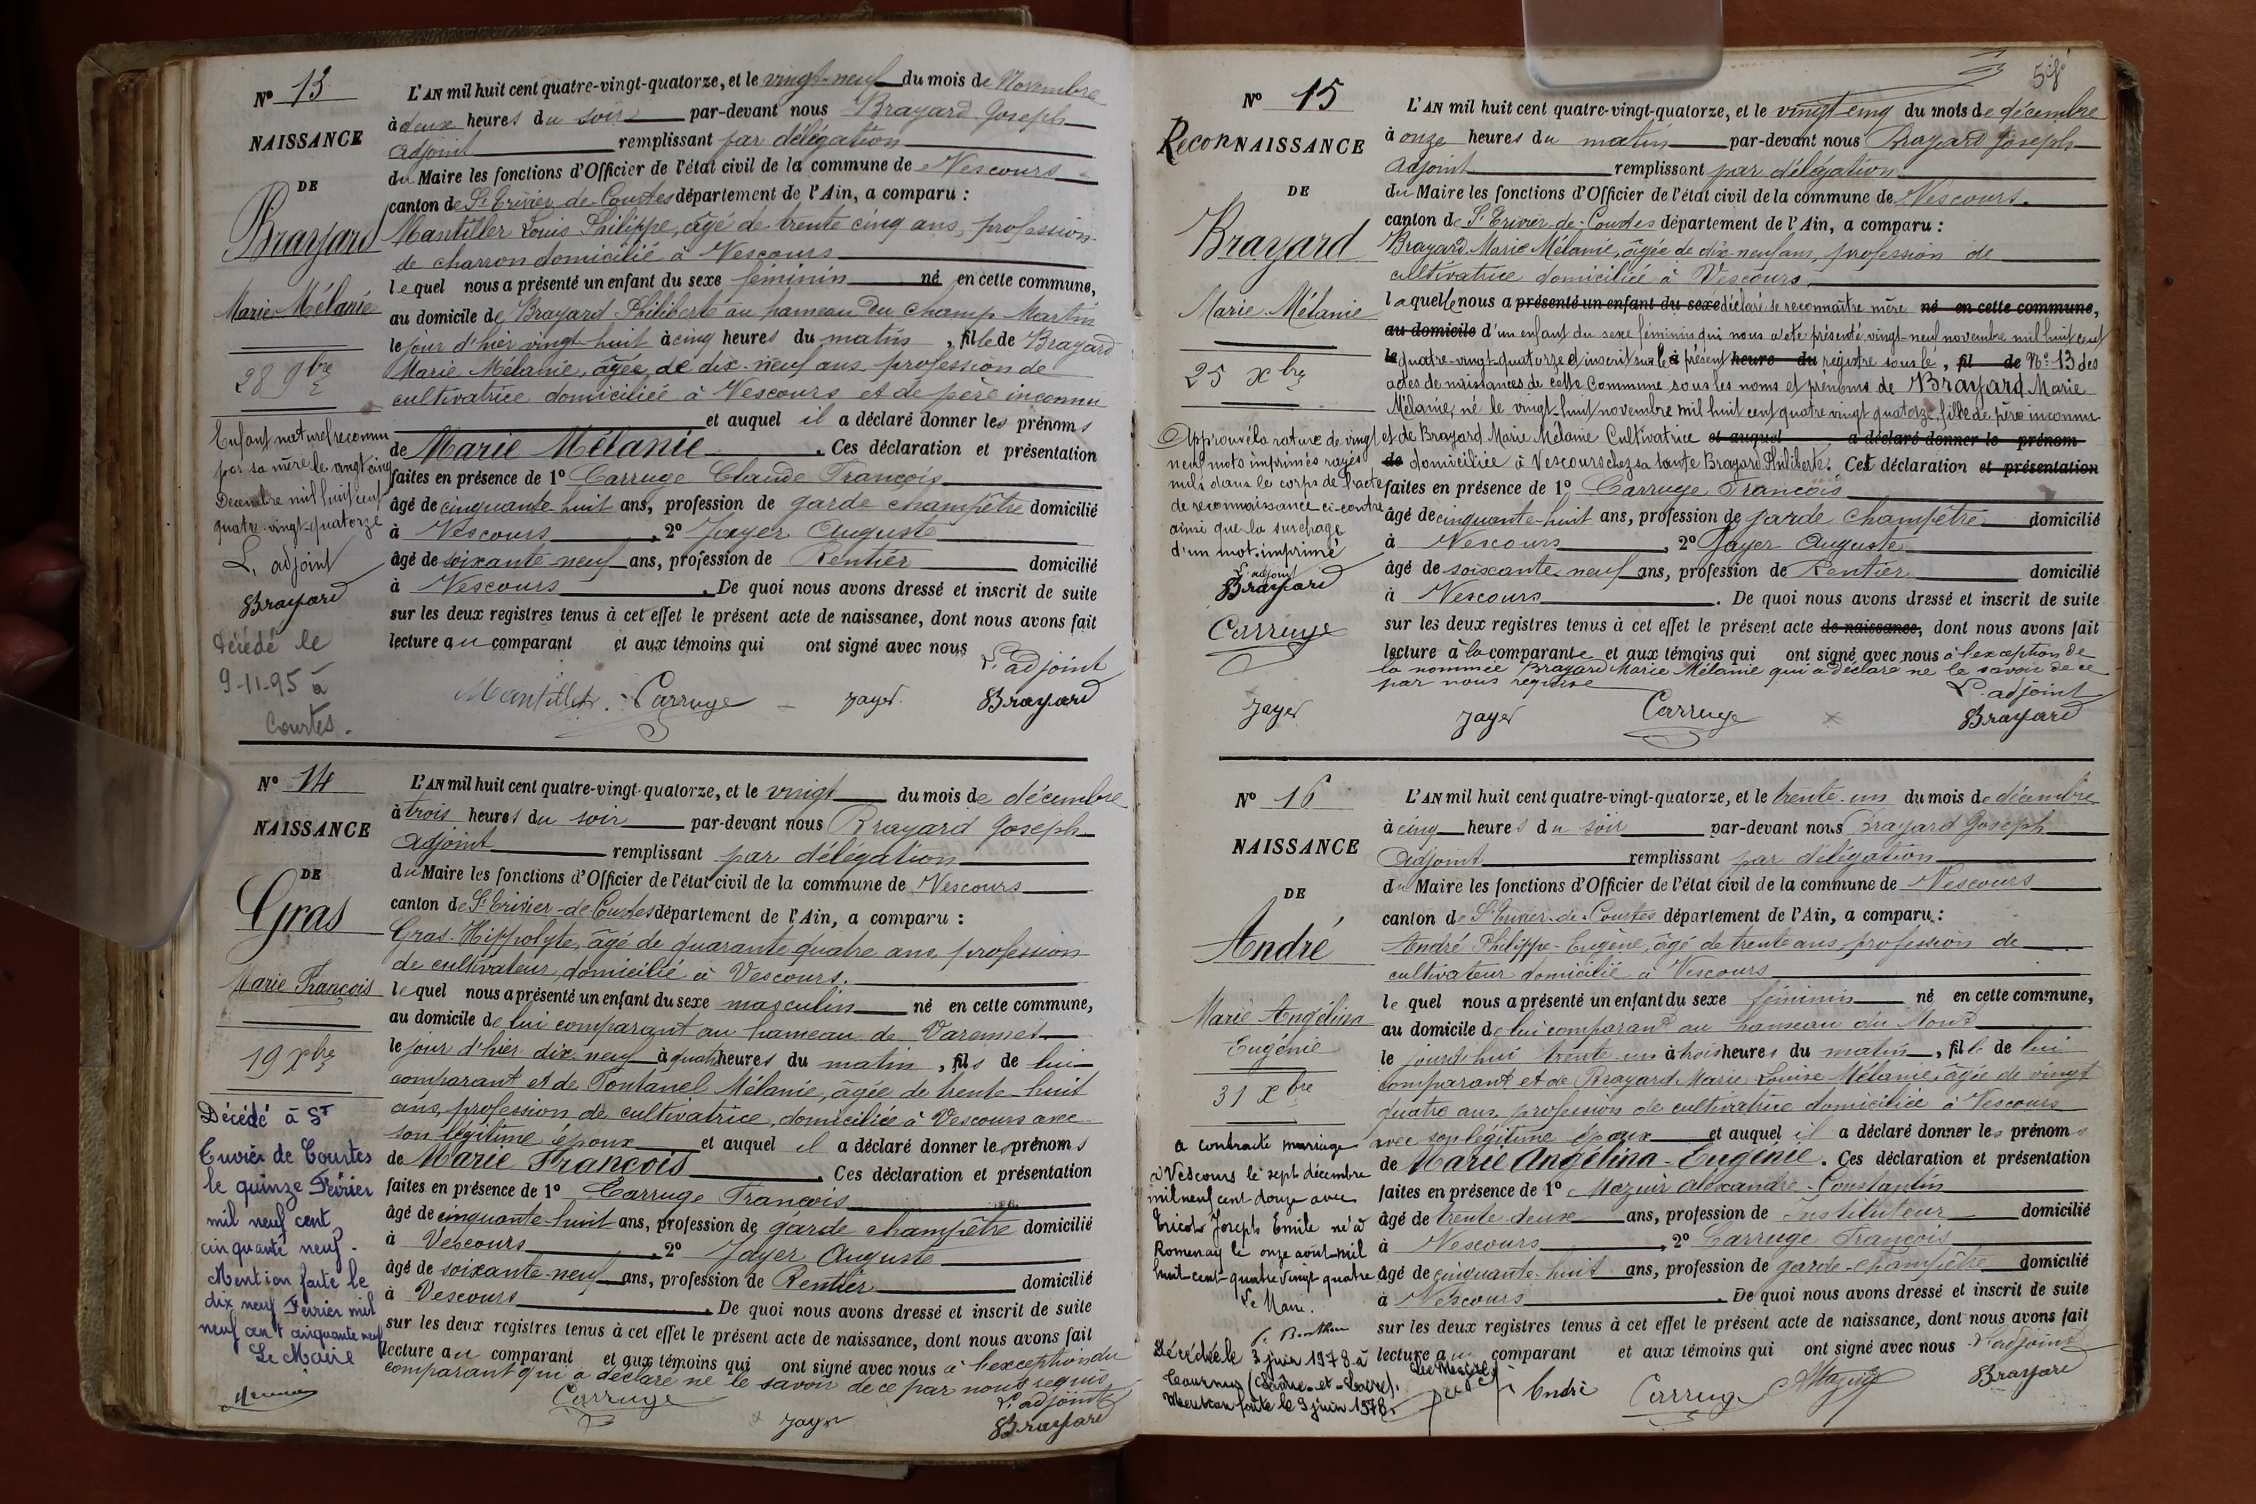 Nº 13
NAISSANCE
DE
Brayard
Marie Mélanie
28 9bre
Enfant naturel reconnu
par sa mère le vingt cinq
Decembre mil huit cent
quatre-vingt-quatorze
L'adjoint
Brayard
Décédé le
9-11-95 à
Courtes.
L'AN mil huit cent quatre-vingt-quatorze, et le vingt-neuf du mois de Novembre
à deux heures du soir par-devant nous Brayard Joseph
adjoint remplissant par délégation
du Maire les fonctions d'Officier de l'état civil de la commune de Vescours
canton de St Trivier de Courtes département de l'Ain, a comparu :
Mantiller Louis Philippe, âgé de trente cinq ans, profession
de charron domicilié à Vescours
lequel nous a présenté un enfant du sexe féminin né en cette commune,
au domicile de Brayard Philiberte au hameau du Champ Martin
le jour d'hier vingt-huit à cinq heures du matin, fille de Brayard
Marie Mélanie, âgée de dix-neuf ans profession de
cultivatrice domiciliée à Vescours et de père inconnu
et auquel il a déclaré donner les prénoms
de Marie Mélanie. Ces déclaration et présentation
faites en présence de 1º Carruge Claude François
âgé de cinquante-huit ans, profession de garde champêtre domicilié
à Vescours, 2º Jayer Auguste
âgé de soixante-neuf ans, profession de Rentier domicilié
à Vescours. De quoi nous avons dressé et inscrit de suite
sur les deux registres tenus à cet effet le présent acte de naissance, dont nous avons fait
lecture au comparant et aux témoins qui ont signé avec nous
L'adjoint
Mantiller Carruge Jayer Brayard
Nº 14
NAISSANCE
DE
Gras
Marie François
19 Xbre
Décédé à St
Trivier de Courtes
le quinze Février
mil neuf cent
cinquante neuf.
Mention faite le
dix neuf Février mil
neuf cent cinquante neuf
Le Maire
L'AN mil huit cent quatre-vingt-quatorze, et le vingt du mois de décembre
à trois heures du soir par-devant nous Brayard Joseph
adjoint remplissant par délégation
du Maire les fonctions d'Officier de l'état civil de la commune de Vescours
canton de St Trivier-de-Courtes département de l'Ain, a comparu :
Gras Hippolyte, âgé de quarante quatre ans, profession
de cultivateur, domicilié à Vescours.
lequel nous a présenté un enfant du sexe masculin né en cette commune,
au domicile de lui comparant au hameau de Varennes
le jour d'hier dix-neuf à quatre heures du matin, fils de lui
comparant et de Fontanel Mélanie, âgée de trente-huit
ans, profession de cultivatrice, domiciliée à Vescours avec
son légitime époux et auquel il a déclaré donner les prénoms
de Marie François. Ces déclaration et présentation
faites en présence de 1º Carruge François
âgé de cinquante-huit ans, profession de garde champêtre domicilié
à Vescours, 2º Jayer Auguste
âgé de soixante-neuf ans, profession de Rentier domicilié
à Vescours. De quoi nous avons dressé et inscrit de suite
sur les deux registres tenus à cet effet le présent acte de naissance, dont nous avons fait
lecture au comparant et aux témoins qui ont signé avec nous à l'exception du
comparant qui a déclaré ne le savoir de ce par nous requis
L'adjoint
Carruge Jayer Brayard
Nº 15
ReconNAISSANCE
DE
Brayard
Marie Mélanie
25 Xbre
Approuvé la rature de vingt
neuf mots imprimés rayés
nuls dans le corps de l'acte
de reconnaissance ci-contre
ainsi que la surcharge
d'un mot imprimé
L'adjoint
Brayard
Carruge
Jayer
L'AN mil huit cent quatre-vingt-quatorze, et le vingt-cinq du mois de décembre
à onze heures du matin par-devant nous Brayard Joseph
adjoint remplissant par délégation
du Maire les fonctions d'Officier de l'état civil de la commune de Vescours.
canton de St Trivier-de-Courtes département de l'Ain, a comparu :
Brayard Marie Mélanie, âgée de dix-neuf ans, profession de
cultivatrice domiciliée à Vescours.
laquelle nous a présenté un enfant du sexe déclaré se reconnaître mère né en cette commune,
au domicile d'un enfant du sexe féminin qui nous a été présenté vingt-neuf novembre mil huit cent
le quatre-vingt-quatorze et inscrit sur le à présent heure du registre sous le, fil de Nº 13 des
actes de naissances de cette Commune sous les noms et prénoms de Brayard Marie
Mélanie, né le vingt-huit novembre mil huit cent quatre vingt quatorze, fille de père inconnu
et de Brayard Marie Mélanie Cultivatrice et auquel a déclaré donner le prénom
de domiciliée à Vescours chez sa tante Brayard Philiberte. Cet déclaration et présentation
faites en présence de 1º Carruge François
âgé de cinquante-huit ans, profession de garde champêtre domicilié
à Vescours, 2º Jayer Auguste
âgé de soixante-neuf ans, profession de Rentier domicilié
à Vescours. De quoi nous avons dressé et inscrit de suite
sur les deux registres tenus à cet effet le présent acte de naissance, dont nous avons fait
lecture à la comparante et aux témoins qui ont signé avec nous à l'exception de
la nommée Brayard Marie Mélanie qui a déclaré ne le savoir de ce
par nous requise
L'adjoint
Jayer Carruge Brayard
Nº 16
NAISSANCE
DE
André
Marie Angélina
Eugénie
31 Xbre
a contracté mariage
à Vescours le sept décembre
mil neuf cent douze avec
Tricot Joseph Emile né à
Romenay le onze août mil
huit-cent-quatre vingt quatre
Le Maire.
Décédée le 3 juin 1978 à
Tournus (Saône-et-Loire).
Mention faite le 9 juin 1978.
Le Maire
L'AN mil huit cent quatre-vingt-quatorze, et le trente-un du mois de décembre
à cinq heures du soir par-devant nous Brayard Joseph
adjoint remplissant par délégation
du Maire les fonctions d'Officier de l'état civil de la commune de Vescours
canton de St Trivier-de-Courtes département de l'Ain, a comparu :
André Philippe-Eugène, âgé de trente ans, profession de
cultivateur domicilié à Vescours
lequel nous a présenté un enfant du sexe féminin né en cette commune,
au domicile de lui comparant au hameau du Mont
le jourd'hui trente-un à trois heures du matin, fille de lui
comparant et de Brayard Marie Louise Mélanie, âgée de vingt
quatre ans, profession de cultivatrice domiciliée à Vescours
avec son légitime époux et auquel il a déclaré donner les prénoms
de Marie Angélina-Eugénie. Ces déclaration et présentation
faites en présence de 1º Mazuir Alexandre-Constantin
âgé de trente-deux ans, profession de Instituteur domicilié
à Vescours, 2º Carruge François
âgé de cinquante-huit ans, profession de garde-champêtre domicilié
à Vescours. De quoi nous avons dressé et inscrit de suite
sur les deux registres tenus à cet effet le présent acte de naissance, dont nous avons fait
lecture au comparant et aux témoins qui ont signé avec nous L'adjoint
André Carruge Mazuir Brayard